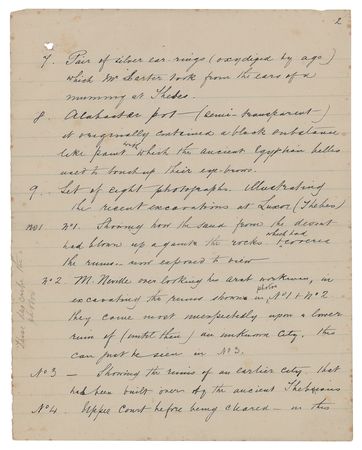 2
7. Pair of silver ear-rings (oxydized by age)
which Mr Carter took from the ears of a
mummy at Thebes.
8. Alabaster pot — (semi-transparent)
it originally contained a black substance
like paint with which the ancient Egyptian belles
used to touch up their eye-brows.
9. Set of eight photographs illustrating
the recent excavations at Luxor (Thebes)
No 1 No 1. Showing how the sand from the desert
which had
had blown up against the rocks & covered
the ruins — now exposed to view
No 2 M. Naville over looking his arab workmen, in
photos
excavating the ruins shown in No 1 & No 2
they came most unexpectedly upon a lower
ruin of (until then) an unknown city. This
can just be seen in No 3.
No 3 — Showing the ruins of an earlier city that
had been built over by the ancient Thebans
No 4 Upper Court before being cleared — in this
photos